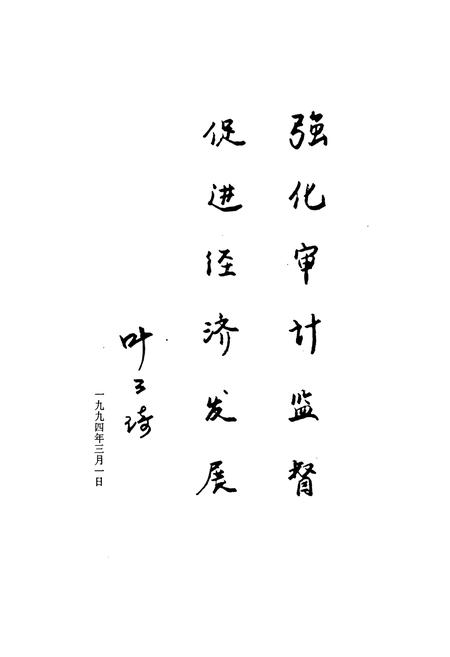 强化审计监督
促进经济发展
叶子琦
一九九四年三月一日